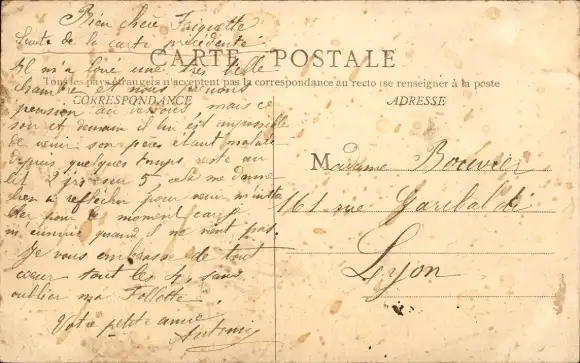 Bien chère Friquette
Suite de la carte précédente
CARTE POSTALE
Tous les pays étrangers n'acceptent pas la correspondance au recto (se renseigner à la poste
CORRESPONDANCE
ADRESSE
Il m'a loué une très belle
chambre et nous
pension au dessous, mais ce
soir et demain il lui est impossible
de venir son père étant malade
depuis quelques temps reste au
lit 2 jrs sur 5 cela me donne
bien à réflechir pour venir
pour le moment car je
m'ennuie quand il ne vient pas.
Je vous embrasse de tout
cœur tout les 4, sans
oublier ma Follette
Votre petite amie,
Madame Bouvier
161 rue Garibaldi
Lyon